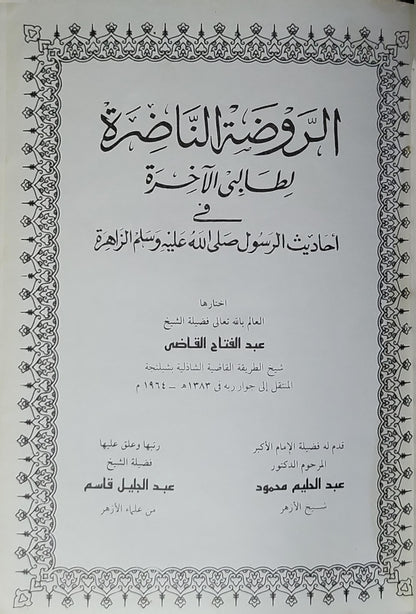 الرَّوْضَة النَّاضِرَة
لِطَالِبِى الآخِرَة
فى
أحاديث الرسول صَلى اللهُ عَليْه وَسَلم الزاهرة
اختارها
العالم بالله تعالى فضيلة الشيخ
عبد الفتاح القاضى
شيخ الطريقة القاضية الشاذلية بشبلنجة
المنتقل إلى جوار ربه فى ١٣٨٣ هـ – ١٩٦٤ م
قدم له فضيلة الإمام الأكبر
المرحوم الدكتور
عبد الحليم محمود
شيخ الأزهر
رتبها وعلق عليها
فضيلة الشيخ
عبد الجليل قاسم
من علماء الأزهر